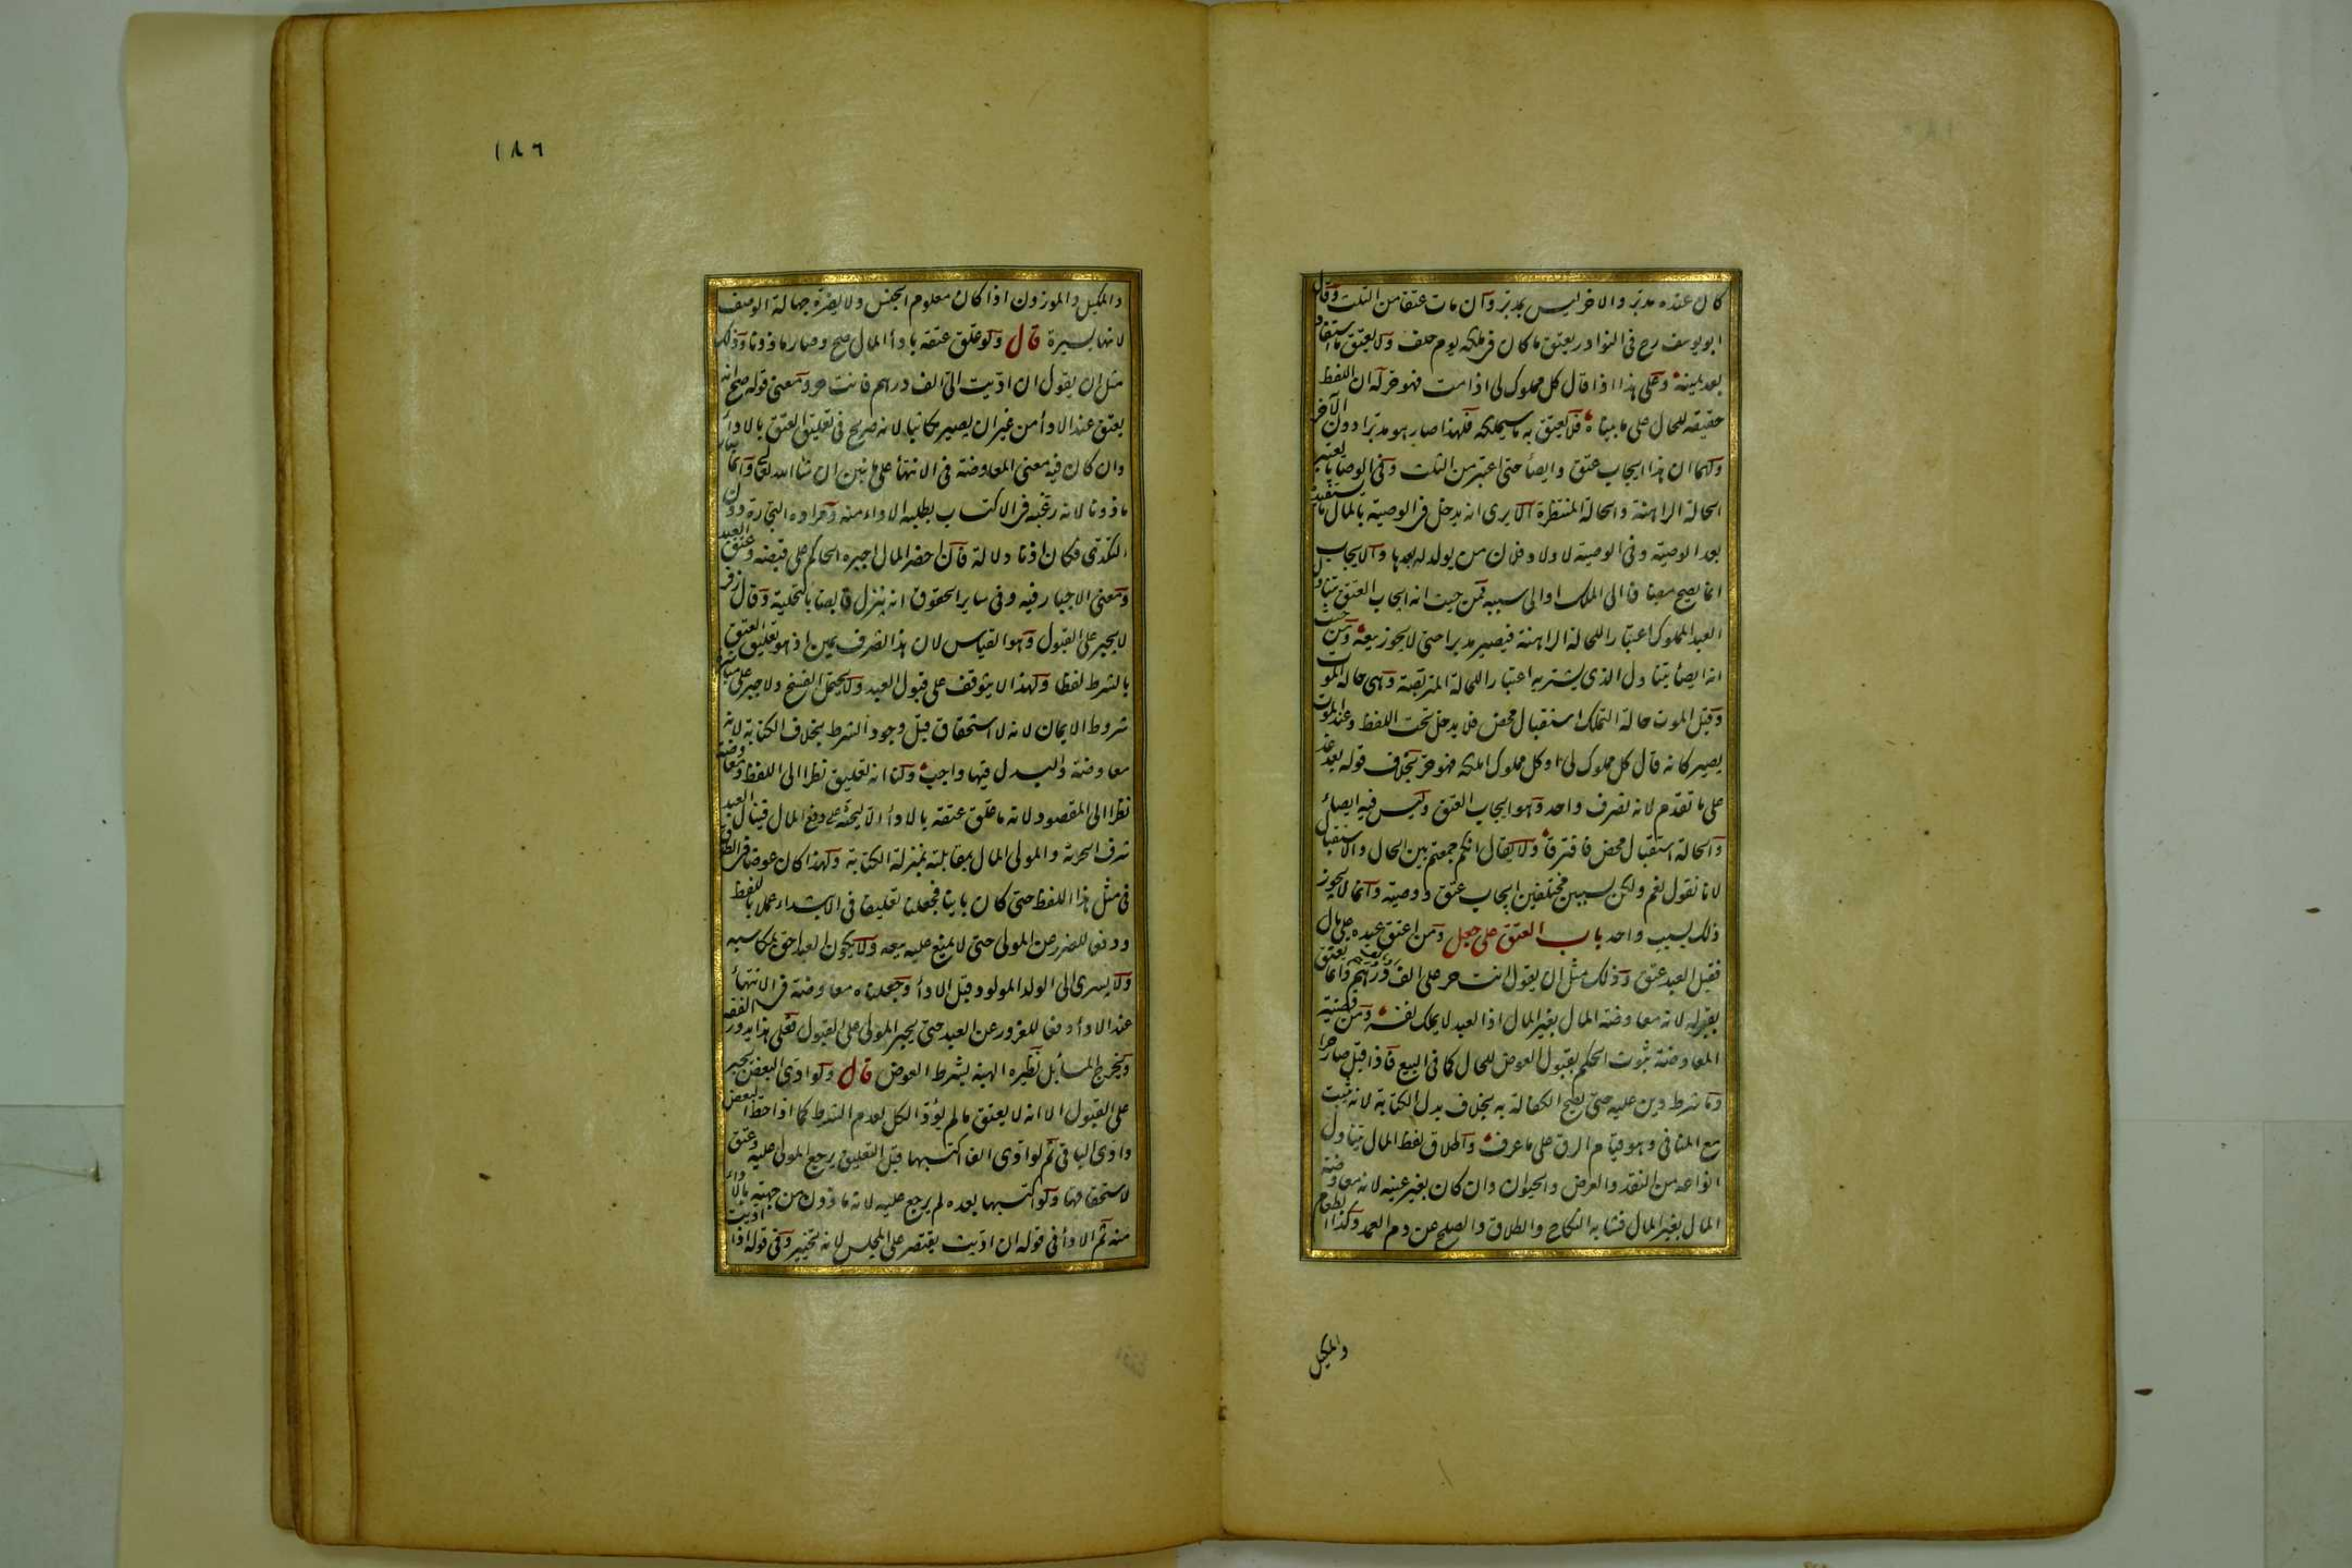 كان عنده مدبر والاخر ليس بمدبر وان مات عتقا من الثلث وقال
ابو يوسف رح فى النوادر يعتق ما كان فى ملكه يوم حلف ولا يعتق ما استفاد
بعد يمينه وعلى هذا اذا قال كل مملوك لى اذا مت فهو حر له ان اللفظ
حقيقة للحال على ما بيناه فلا يعتق به ما سيملكه فلهذا صار هو مدبرا دون الآخر
ولهما ان هذا ايجاب عتق وايصأ حتى اعتبر من الثلث وفى الوصايا يعتبر
الحالة الراهنة والحالة المنتظرة الا يرى انه يدخل فى الوصية بالمال ما يستفيده
بعد الوصية وفى الوصية لاولاد فلان من يولد له بعدها والايجاب
انما يصح مضافا الى الملك او الى سببه فمن حيث انه ايجاب العتق يتناول
العبد المملوك اعتبارا للحالة الراهنة فيصير مدبرا حتى لا يجوز بيعه ومن حيث
انه ايصأ يتناول الذى يشتريه اعتبارا للحالة المتربصة وهى حالة الموت
وقبل الموت حالة التملك استقبال محض فلا يدخل تحت اللفظ وعند الموت
يصير كانه قال كل مملوك لى او كل مملوك املكه فهو حر بخلاف قوله بعد غد
على ما تقدم لانه تصرف واحد وهو ايجاب العتق وليس فيه ايصأ
والحالة استقبال محض فافترقا ولا يقال انكم جمعتم بين الحال والاستقبال
لانا نقول نعم ولكن بسببين مختلفين ايجاب عتق ووصية وانما لا يجوز
ذلك بسبب واحد باب العتق على جعل ومن اعتق عبده على مال
فقبل العبد عتق وذلك مثل ان يقول انت حر على الف درهم وانما يعتق
بقبوله لانه معاوضة المال بغير المال اذ العبد لا يملك نفسه ومن قضية
المعاوضة ثبوت الحكم بقبول العوض للحال كما فى البيع فاذا قبل صار حرا
وما شرط دين عليه حتى يصح الكفالة به بخلاف بدل الكتابة لانه ثبت
مع المنافى وهو قيام الرق على ما عرف واطلاق لفظ المال يتناول
انواعه من النقد والعرض والحيوان وان كان بغير عينه لانه معاوضة
المال بغير المال فشابه النكاح والطلاق والصلح عن دم العمد وكذا الطعام
والمكيل
١٨٦
والمكيل والموزون اذا كان معلوم الجنس ولا يضره جهالة الوصف
لانها يسيرة قال ولو علق عتقه بادأ المال صح وصار ماذونا وذلك
مثل ان يقول ان اديت الى الف درهم فانت حر ومعنى قوله صح انه
يعتق عند الادأ من غير ان يصير مكاتبا لانه صريح فى تعليق العتق بالادأ
وان كان فيه معنى المعاوضة فى الانتهأ على ما نبين ان شا الله تعالى وانما صار
ماذونا لانه رغبه فى الاكتساب بطلبه الاداء منه ومراده التجارة دون
التكدى فكان اذنا دلالة فان احضر المال اجبره الحاكم على قبضه وعتق العبد
ومعنى الاجبار فيه وفى ساير الحقوق انه ينزل قابضا بالتخلية وقال زفر
لا يجبر على القبول وهو القياس لان هذا تصرف يمين اذ هو تعليق العتق
بالشرط لفظا ولهذا لا يتوقف على قبول العبد ولا يحتمل الفسخ ولا جبر على مباشرة
شروط الايمان لانه لا استحقاق قبل وجود الشرط بخلاف الكتابة لانه
معاوضة والبدل فيها واجب ولنا انه تعليق نظرا الى اللفظ ومعاوضة
نظرا الى المقصود لانه ما علق عتقه بالادأ الا ليحثه على دفع المال فينال العبد
شرف الحرية والمولى المال بمقابلته بمنزلة الكتابة ولهذا كان عوضا فى الطلاق
فى مثل هذا اللفظ حتى كان باينا فجعلنا تعليقا فى الابتداء عملا باللفظ
ودفعا للضرر عن المولى حتى لا يمتنع عليه بيعه ولا يكون العبد احق بمكاسبه
ولا يسرى الى الولد المولود قبل الادأ وجعلناه معاوضة فى الانتهأ
عند الادأ دفعا للغرور عن العبد حتى يجبر المولى على القبول فعلى هذا يدور الفقه
ويخرج المسايل نظيره الهبة بشرط العوض قال ولو ادى البعض يجبر
على القبول الا انه لا يعتق ما لم يؤد الكل لعدم الشرط كما اذا حط البعض
وادى الباقى ثم لو ادى الفا اكتسبها قبل التعليق يرجع المولى عليه وعتق
لاستحقاقها ولو اكتسبها بعده لم يرجع عليه لانه ماذون من جهته بالاداء
منه ثم الادأ فى قوله ان اديت يقتصر على المجلس لانه تخيير وفى قوله اذا اديت